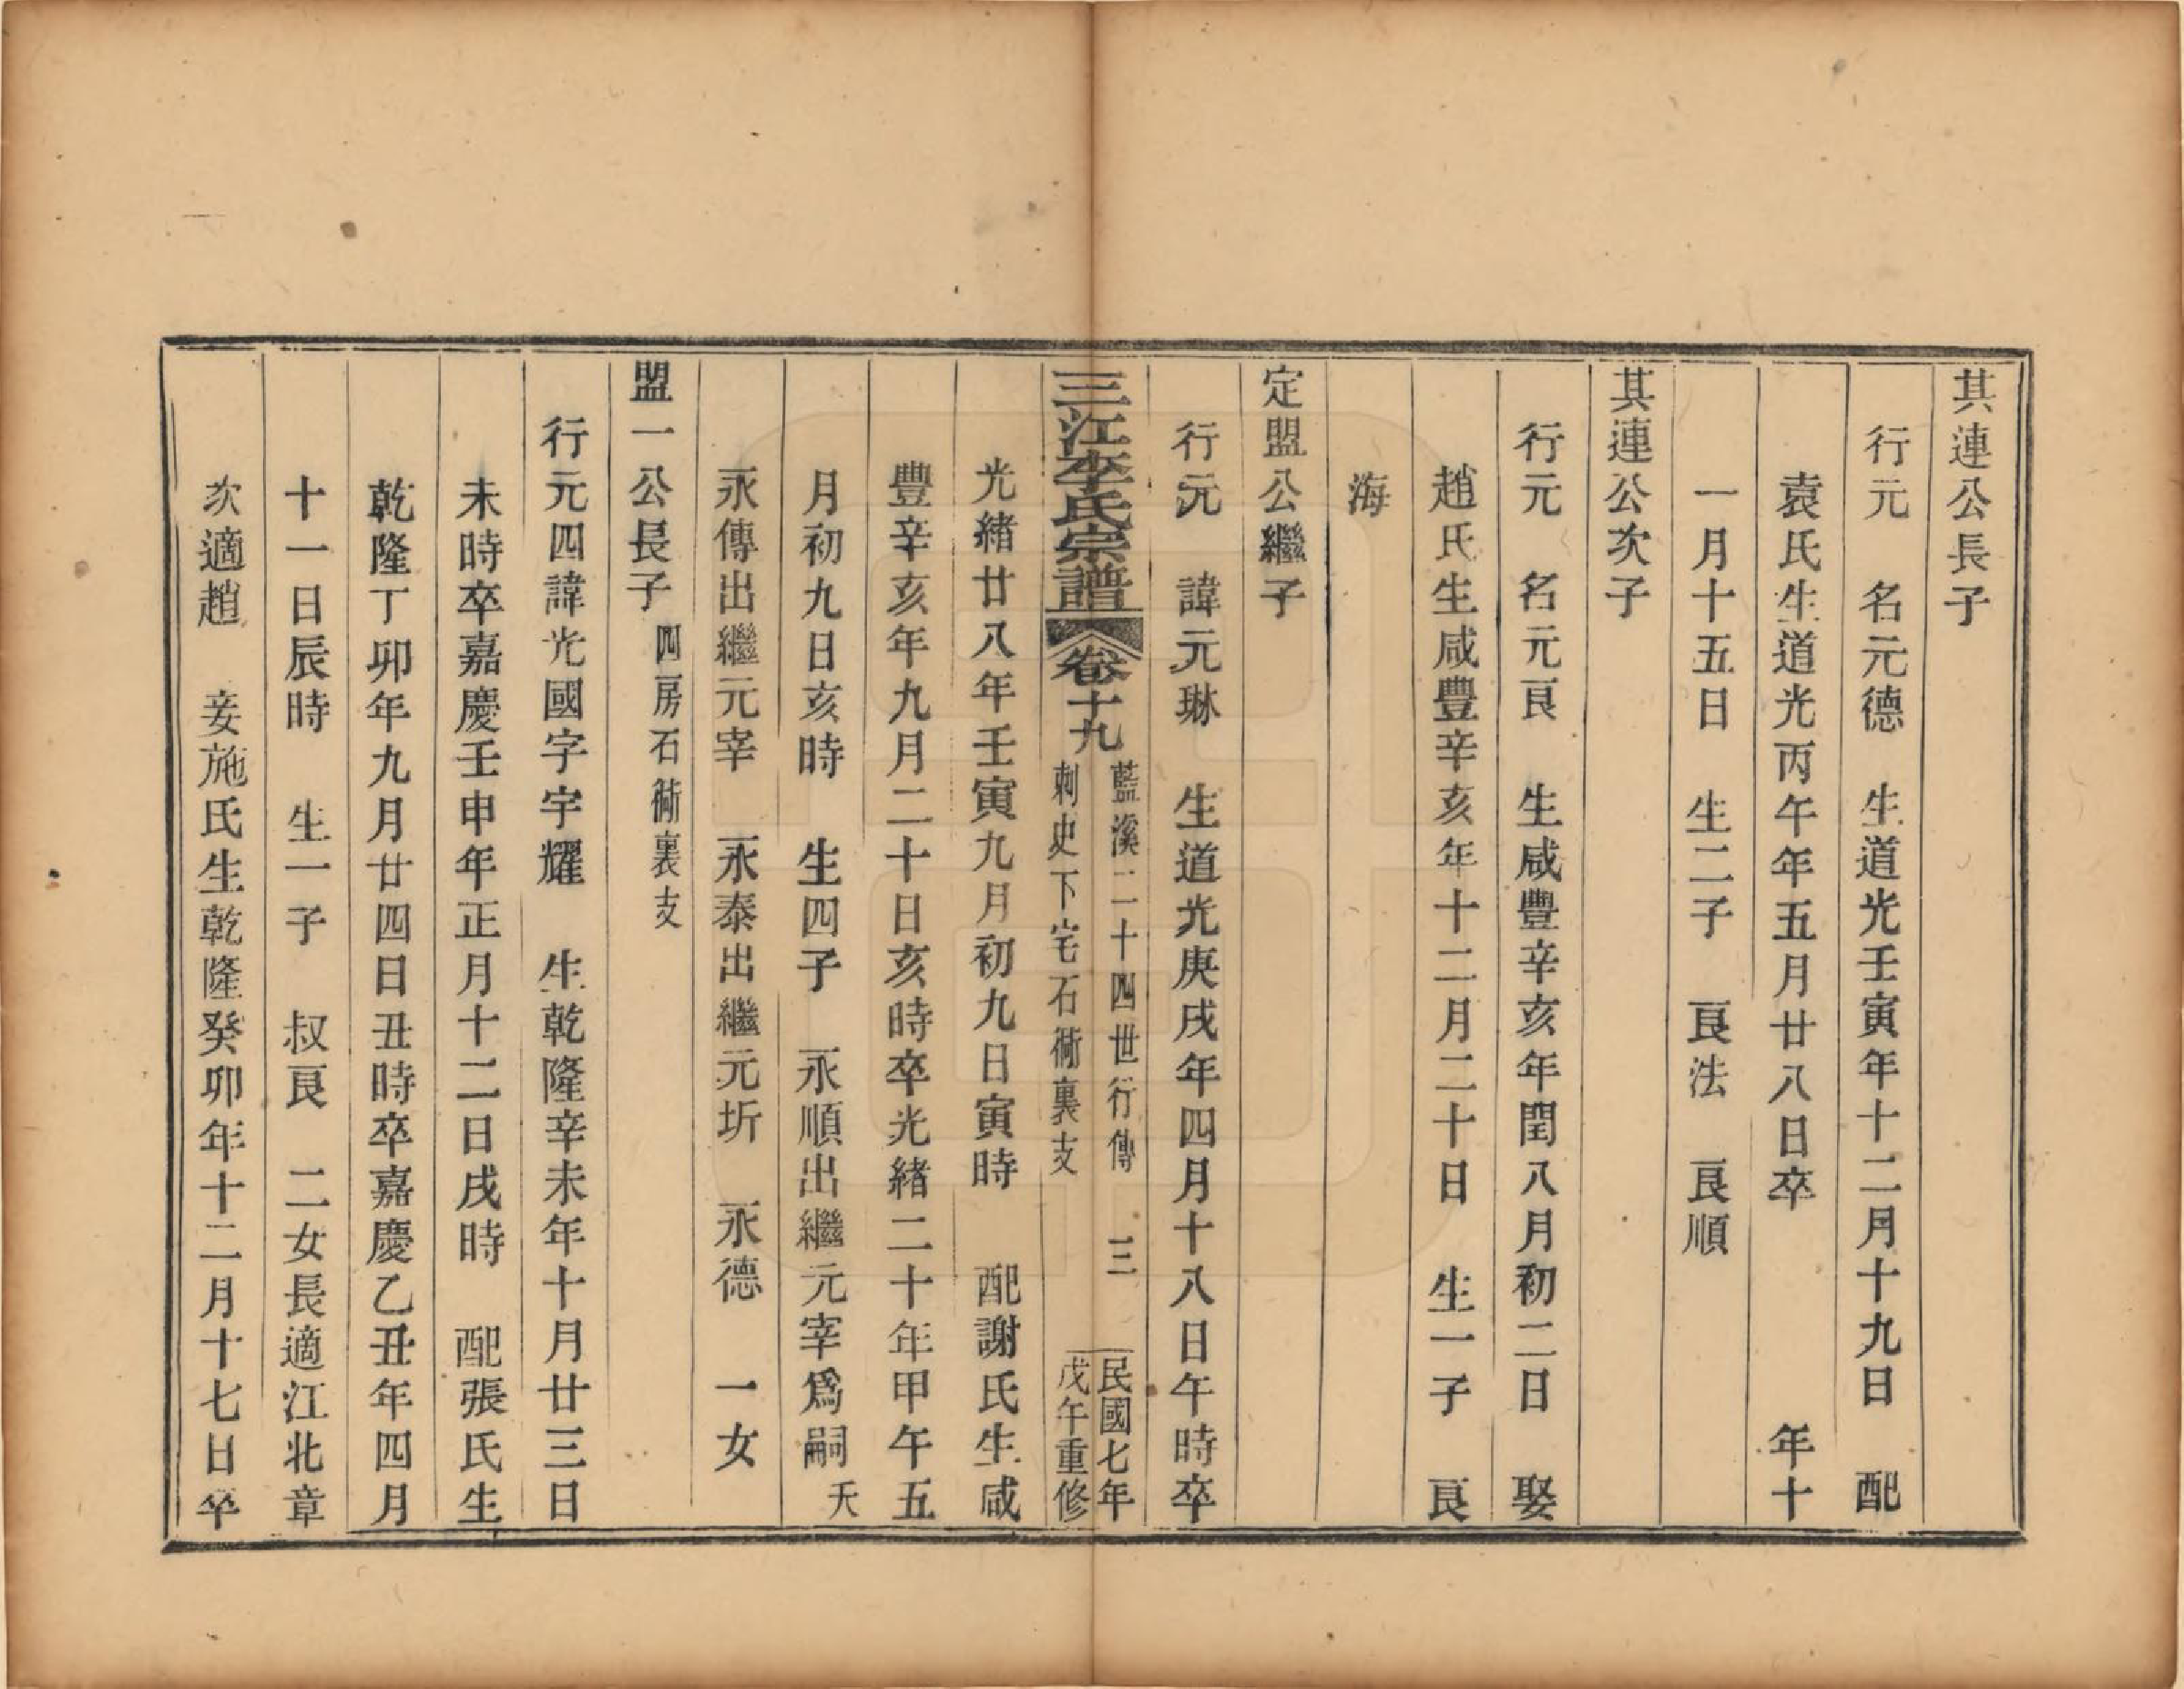 其連公長子
行元　名元德　生道光壬寅年十二月十九日　配
袁氏生道光丙午年五月廿八日卒　　　　年十
一月十五日　生二子　良法　良順
其連公次子
行元　名元良　生咸豐辛亥年閏八月初二日　娶
趙氏生咸豐辛亥年十二月二十日　生一子　良
海
定盟公繼子
行元　諱元琳　生道光庚戌年四月十八日午時卒
三江李氏宗譜　卷十九
藍溪二十四世行傳　三
刺史下宅石衕裏支
民國七年
戊午重修
光緒廿八年壬寅九月初九日寅時　配謝氏生咸
豐辛亥年九月二十日亥時卒光緒二十年甲午五
月初九日亥時　生四子　永順出繼元宰爲嗣　夭
永傳出繼元宰　永泰出繼元圻　永德　一女
盟一公長子　四房石衕裏支
行元四諱光國字宇耀　生乾隆辛未年十月廿三日
未時卒嘉慶壬申年正月十二日戌時　配張氏生
乾隆丁卯年九月廿四日丑時卒嘉慶乙丑年四月
十一日辰時　生一子　叔良　二女長適江北章
次適趙　妾施氏生乾隆癸卯年十二月十七日卒